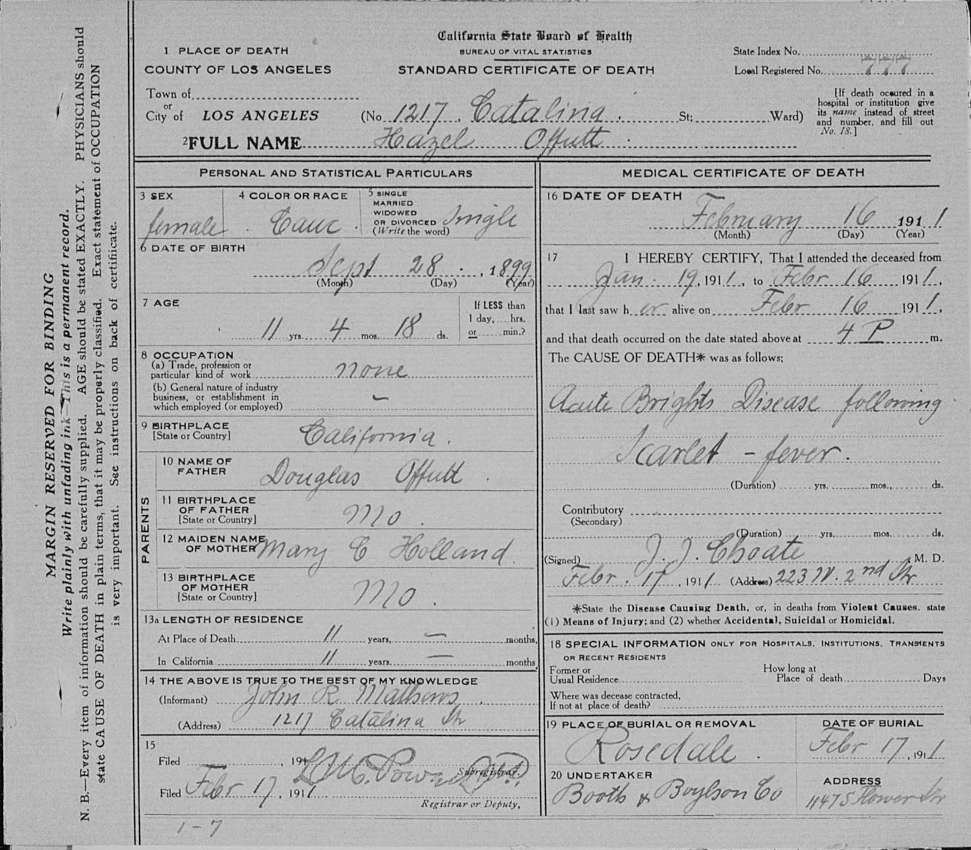 California State Board of Health
BUREAU OF VITAL STATISTICS
STANDARD CERTIFICATE OF DEATH
1 PLACE OF DEATH
COUNTY OF LOS ANGELES
State Index No.
Local Registered No.
Town of
or
City of LOS ANGELES (No. 1217 Catalina St; Ward)
[If death occured in a hospital or institution give its name instead of street and number, and fill out No. 18.]
2 FULL NAME Hazel Offutt
PERSONAL AND STATISTICAL PARTICULARS
3 SEX female
4 COLOR OR RACE Cauc.
5 SINGLE MARRIED WIDOWED OR DIVORCED (Write the word) Single
6 DATE OF BIRTH
Sept 28, 1899
(Month) (Day) (Year)
7 AGE
11 yrs. 4 mos. 18 ds.
If LESS than 1 day, hrs. or min.?
8 OCCUPATION
(a) Trade, profession or particular kind of work none
(b) General nature of industry business, or establishment in which employed (or employed) –
9 BIRTHPLACE
[State or Country] California.
PARENTS
10 NAME OF FATHER Douglas Offutt
11 BIRTHPLACE OF FATHER [State or Country] Mo.
12 MAIDEN NAME OF MOTHER Mary C Holland
13 BIRTHPLACE OF MOTHER [State or Country] Mo.
13a LENGTH OF RESIDENCE
At Place of Death 11 years, — months,
In California 11 years. — months
14 THE ABOVE IS TRUE TO THE BEST OF MY KNOWLEDGE
(Informant) John R. Mathews
(Address) 1217 Catalina St
15
Filed , 191
Subregistrar
Filed Febr 17, 1911
Registrar or Deputy,
1-7
MEDICAL CERTIFICATE OF DEATH
16 DATE OF DEATH
February 16 1911
(Month) (Day) (Year)
17 I HEREBY CERTIFY, That I attended the deceased from
Jan. 19, 1911, to Febr 16 1911,
that I last saw her alive on Febr 16 1911,
and that death occurred on the date stated above at 4 P m.
The CAUSE OF DEATH* was as follows;
Acute Brights Disease following
Scarlet - fever.
(Duration) yrs. mos., ds.
Contributory
(Secondary)
(Duration) yrs. mos. ds.
(Signed) J. J. Choate M. D.
Febr. 17, 1911 (Address) 223 W. 2nd St
*State the Disease Causing Death, or, in deaths from Violent Causes, state
(1) Means of Injury; and (2) whether Accidental, Suicidal or Homicidal.
18 SPECIAL INFORMATION ONLY FOR HOSPITALS, INSTITUTIONS, TRANSIENTS
OR RECENT RESIDENTS
Former or Usual Residence
How long at Place of death Days
Where was decease contracted,
If not at place of death?
19 PLACE OF BURIAL OR REMOVAL
Rosedale.
DATE OF BURIAL
Febr 17, 1911
20 UNDERTAKER
Booth & Boylson Co
ADDRESS
1147 S Flower St
MARGIN RESERVED FOR BINDING
Write plainly with unfading ink—This is a permanent record.
N. B.—Every item of information should be carefully supplied. AGE should be stated EXACTLY. PHYSICIANS should
state CAUSE OF DEATH in plain terms, that it may be properly classified. Exact statement of OCCUPATION
is very important. See instructions on back of certificate.